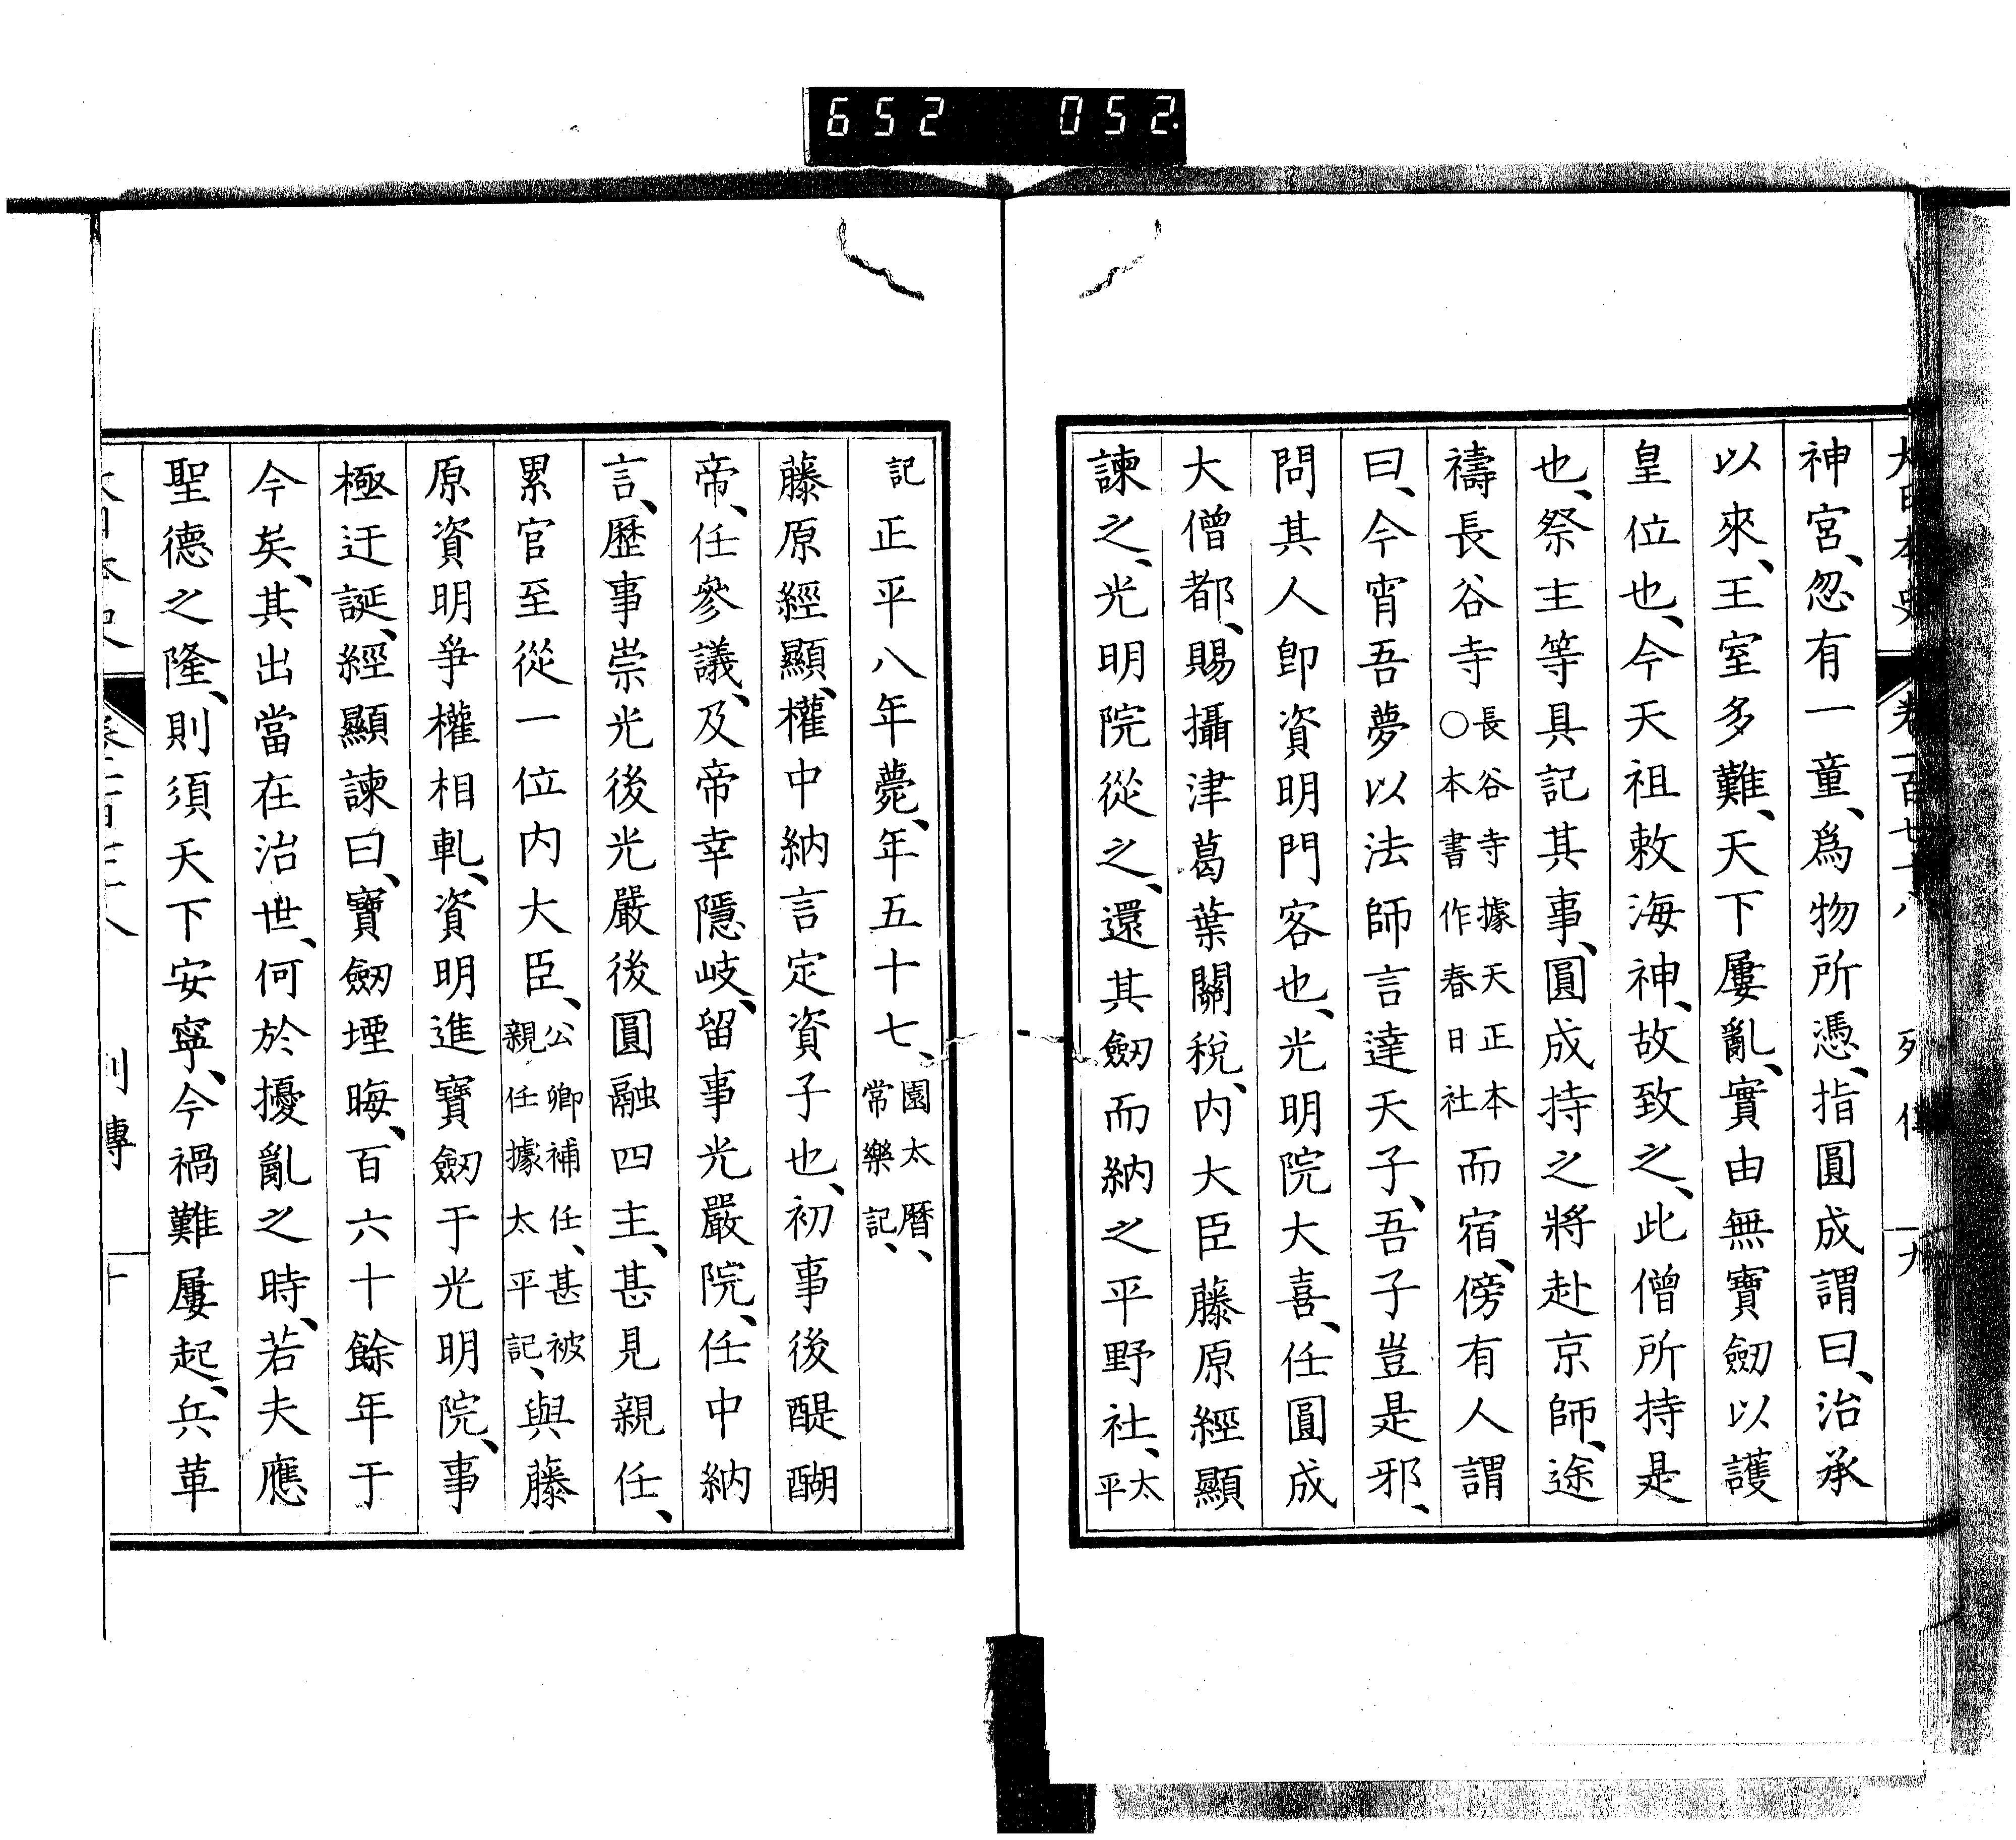 652 052
神宮、忽有一童、爲物所憑、指圓成謂曰、治承
以來、王室多難、天下屢亂、實由無寶劒以護
皇位也、今天祖敕海神、故致之、此僧所持是
也、祭主等具記其事、圓成持之將赴京師、途
禱長谷寺長谷寺據天正本○本書作春日社而宿、傍有人謂
曰、今宵吾夢以法師言達天子、吾子豈是邪、
問其人卽資明門客也、光明院大喜、任圓成
大僧都、賜攝津葛葉關稅、内大臣藤原經顯
諫之、光明院從之、還其劒而納之平野社、太平
記正平八年薨、年五十七、園太曆、常樂記、
藤原經顯、權中納言定資子也、初事後醍醐
帝、任參議、及帝幸隱岐、留事光嚴院、任中納
言、歷事崇光後光嚴後圓融四主、甚見親任、
累官至從一位内大臣、公卿補任、甚被親任據太平記、與藤
原資明爭權相軋、資明進寶劒于光明院、事
極迂誕、經顯諫曰、寶劒堙晦、百六十餘年于
今矣、其出當在治世、何於擾亂之時、若夫應
聖德之隆、則須天下安寧、今禍難屢起、兵革